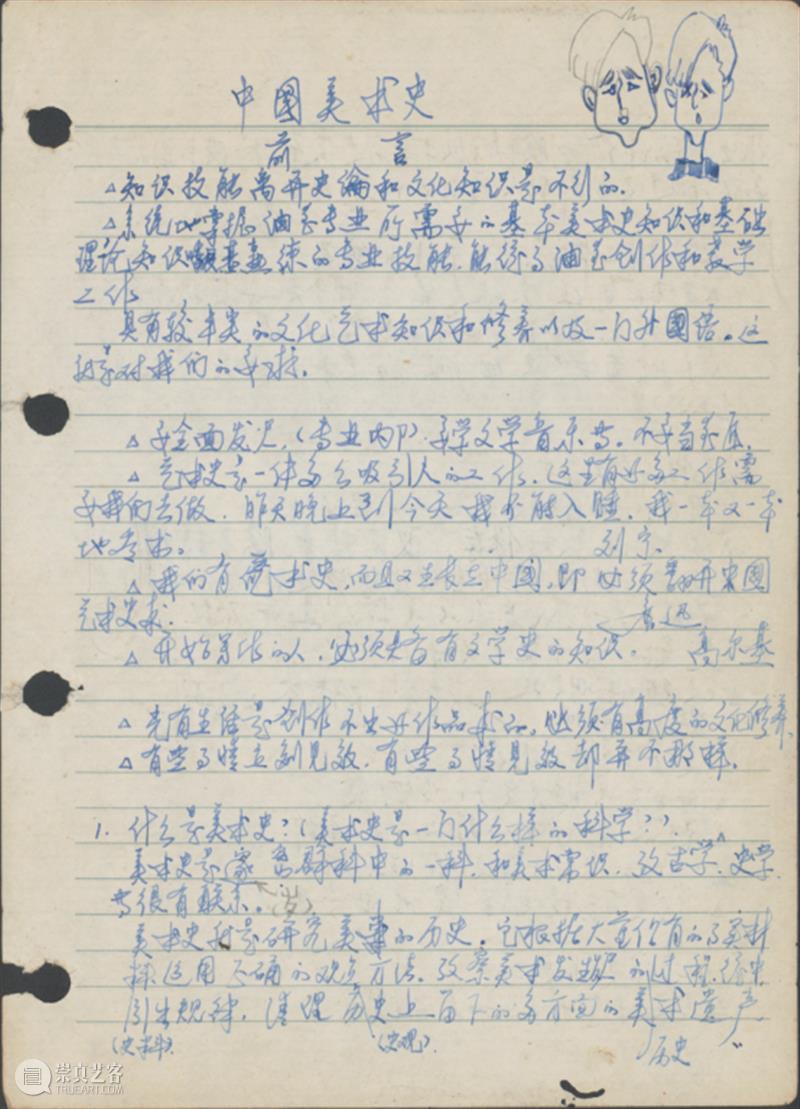 中国美术史
前言
△知识技能离开史论和文化知识是不行的.
△系统地掌握油画专业所需要的基本美术史知识和基础
理论知识 熟练的专业技能.能从事油画创作和教学
工作
具有较丰 的文化艺术知识和修养以及一门外国语。这
是对我们的要求.
△要全面发展,(专业内P)要学文学音乐等.不要当画匠.
△艺术史是一件多么吸引人的工作.这里有好多工作需
要我们去做.昨天晚上到今天我不能入睡.我一本又一本
地 书。 刘
△我们有艺术史,而且又生长在中国,即必须翻开中国
艺术史来.
鲁迅
△开始写作的人,必须具备有文学史的知识。 高尔基
△光有生活是创作不出好作品来的.必须有高度的文化修养.
△有些事情立刻见效.有些事情见效却并不那样.
1. 什么是美术史?(美术史是一门什么样的科学?).
美术史是 科中的一科.和美术常识.考古学、史学
等很有联系。
美术史就是研究美术的历史.它根据大量 有的
料运用正确的观点方法.考察美术发展的过程.从中
引出规律.清理历史上留下的多方面的美术遗产
(史料). (史观). 历史
崇真艺客
TRUEART.COM